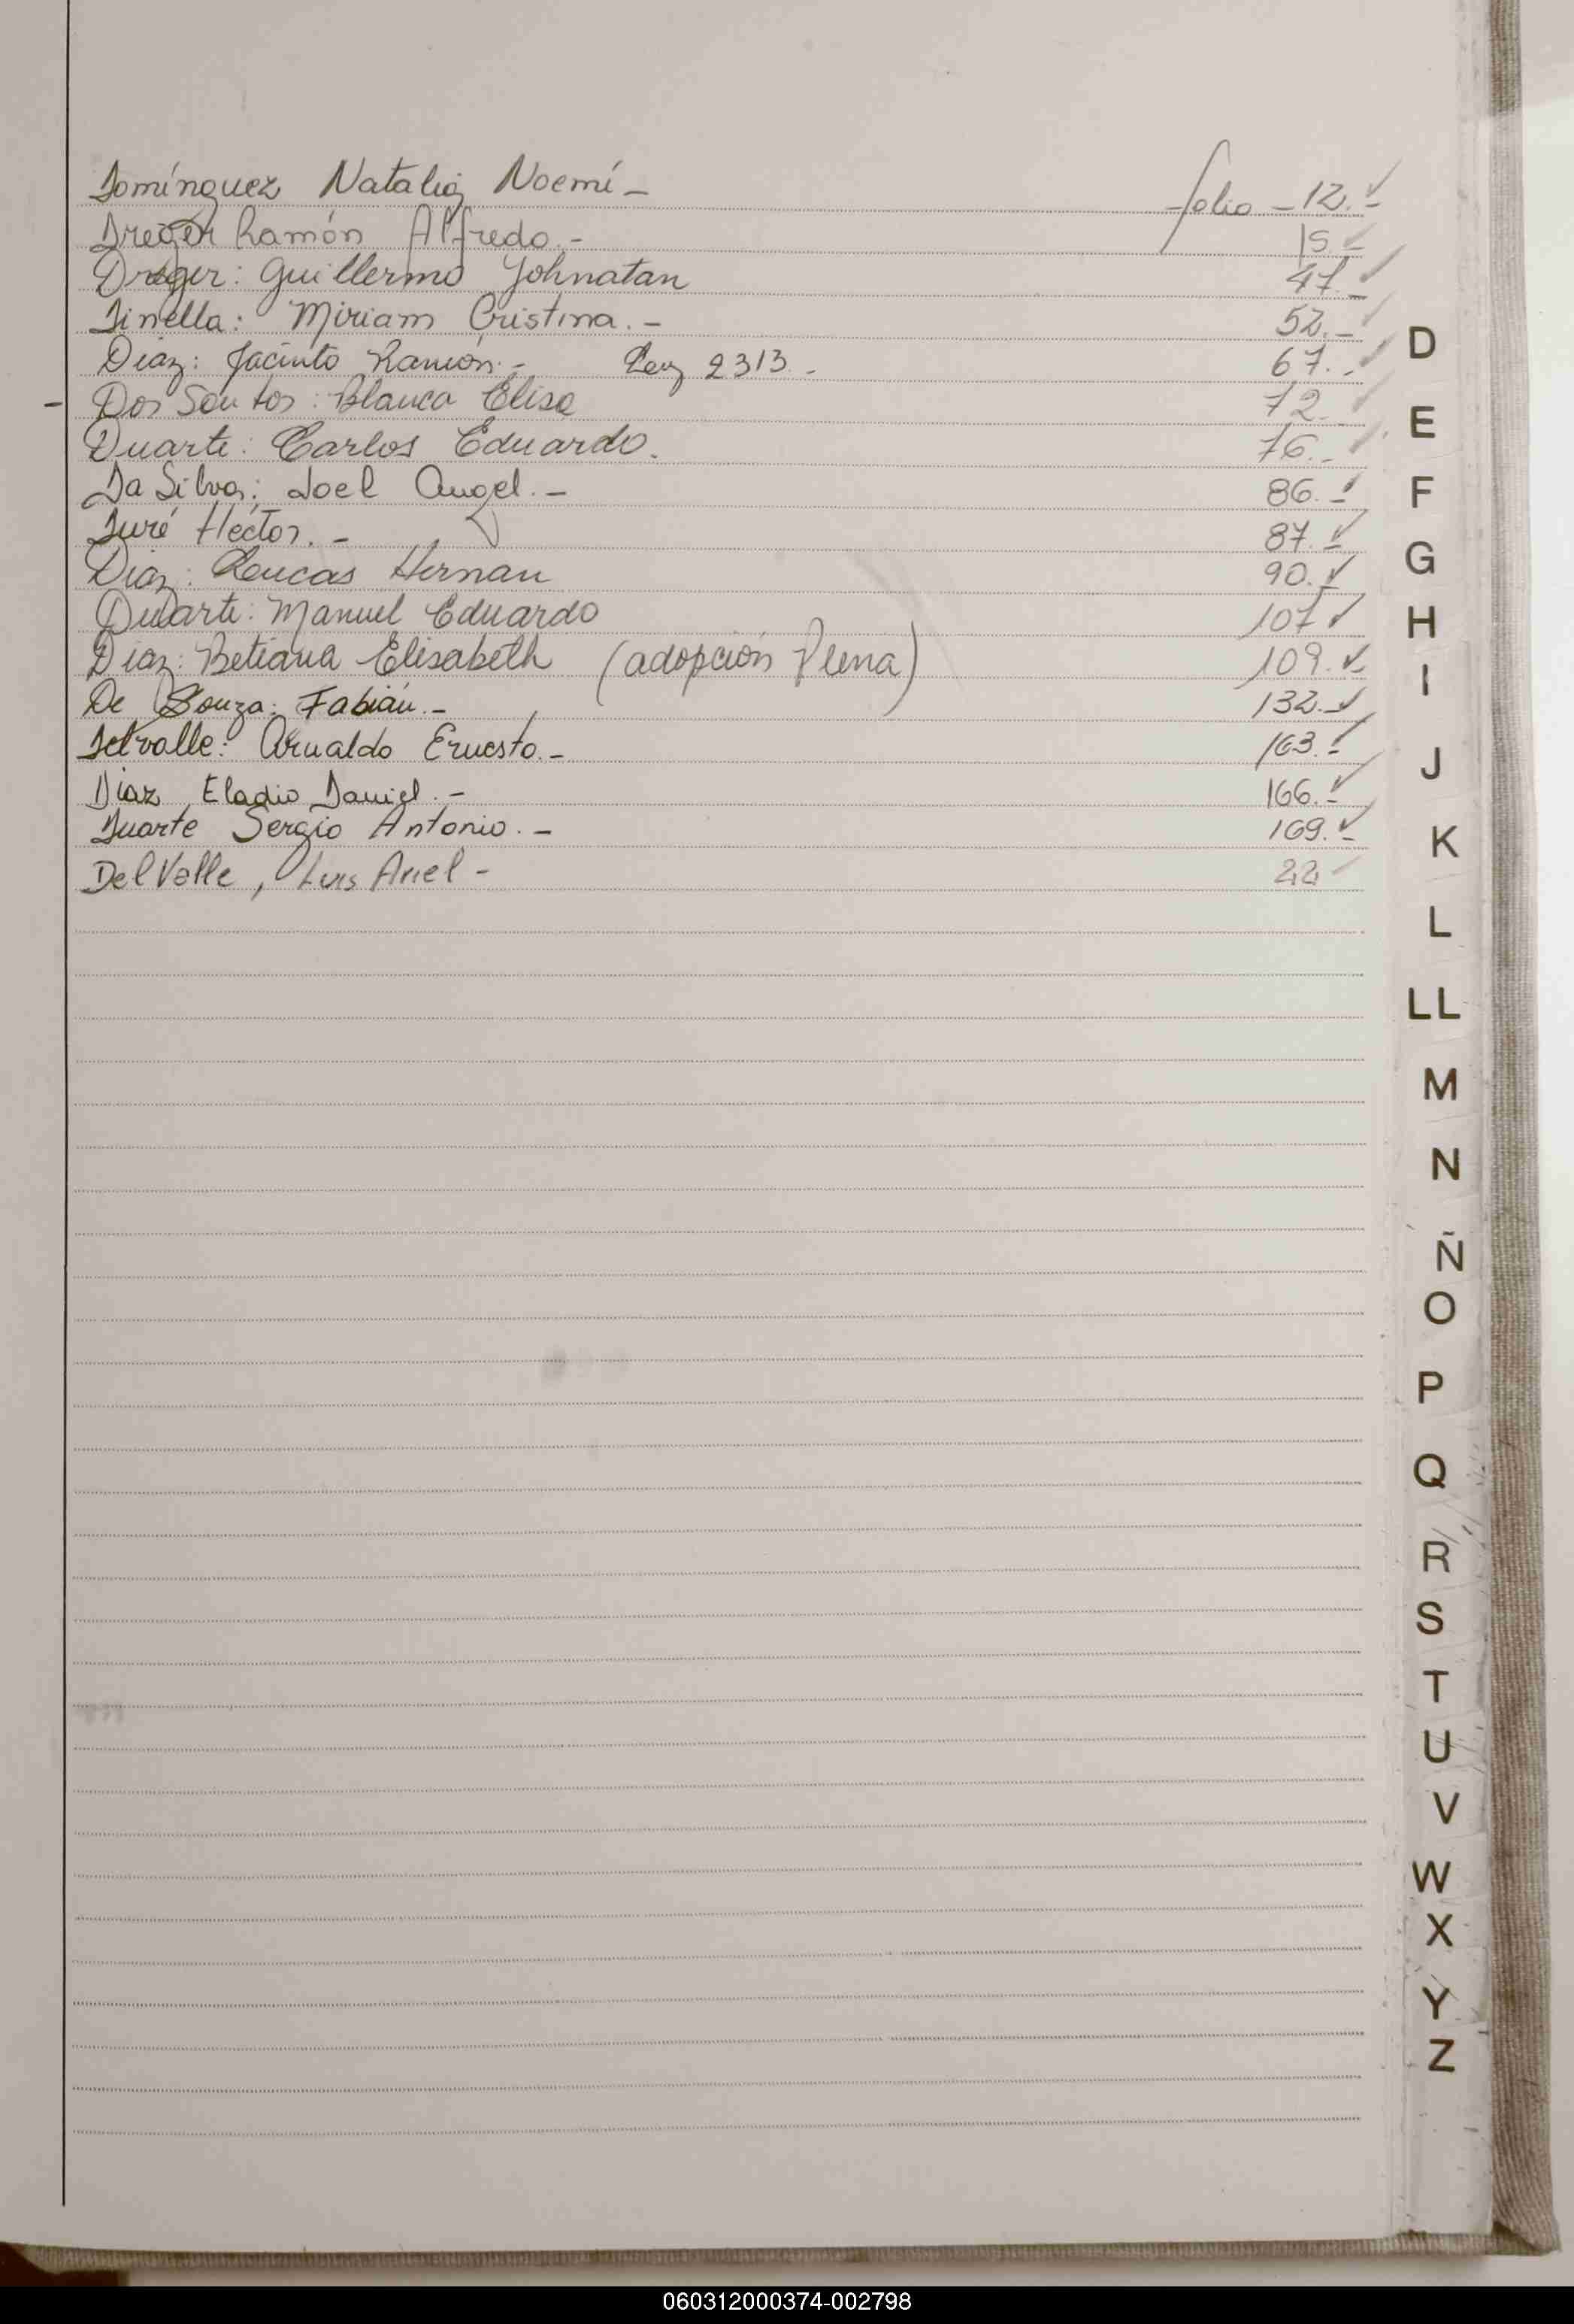 Domínguez Natalia Noemí - folio - 12. -
Dreger Ramón Alfredo. - 15. -
Dreger: Guillermo Yohnatan 47. -
Dinella: Miriam Cristina. - 52. -
Diaz: Jacinto Ramón. - Ley 2313. - 67. -
- Dos Santos: Blanca Elisa 72. -
Duarte: Carlos Eduardo. 76. -
Da Silva: Joel Angel. - 86. -
Duré Héctor. - 87. -
Diaz: Lucas Hernan 90. -
Duarte: Manuel Eduardo 107
Diaz: Betiana Elisabeth (adopción Plena) 109. -
De Souza: Fabián. - 132. -
Delvalle: Arnaldo Ernesto. - 163. -
Diaz Eladio Daniel. - 166. -
Duarte Sergio Antonio. - 169. -
Del Valle, Luis Ariel - 22
D
E
F
G
H
I
J
K
L
LL
M
N
Ñ
O
P
Q
R
S
T
U
V
W
X
Y
Z
060312000374-002798